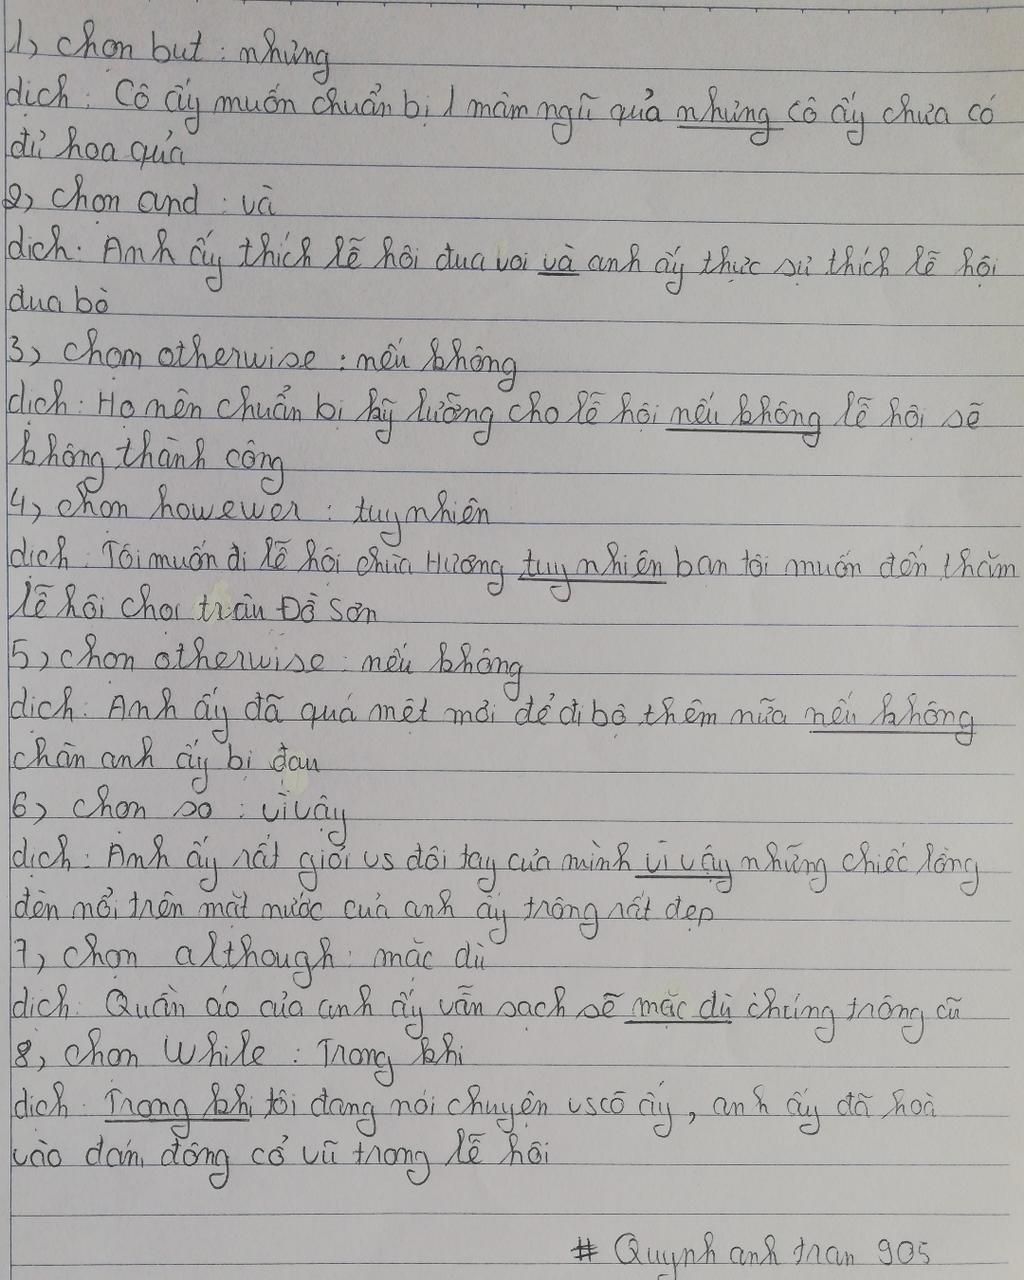 1, chọn but : nhưng
dịch : Cô ấy muốn chuẩn bị 1 mâm ngũ quả nhưng cô ấy chưa có
đủ hoa quả
2, chọn and : và
dịch : Anh ấy thích lễ hội đua voi và anh ấy thực sự thích lễ hội
đua bò
3, chọn otherwise : nếu không
dịch : Họ nên chuẩn bị kỹ lưỡng cho lễ hội nếu không lễ hội sẽ
không thành công
4, chọn howewer : tuy nhiên
dịch : Tôi muốn đi lễ hội chùa Hương tuy nhiên bạn tôi muốn đến thăm
lễ hội chọi trâu Đồ Sơn
5, chọn otherwise : nếu không
dịch : Anh ấy đã quá mệt mỏi để đi bộ thêm nữa nếu không
chân anh ấy bị đau
6, chọn so : vì vậy
dịch : Anh ấy rất giỏi vs đôi tay của mình vì vậy những chiếc lồng
đèn nổi trên mặt nước của anh ấy trông rất đẹp
7, chọn although : mặc dù
dịch : Quần áo của anh ấy vẫn sạch sẽ mặc dù chúng trông cũ
8, chọn While : Trong khi
dịch : Trong khi tôi đang nói chuyện vs cô ấy, anh ấy đã hoà
vào đán đông cổ vũ trong lễ hội
# Quynh anh tran 905